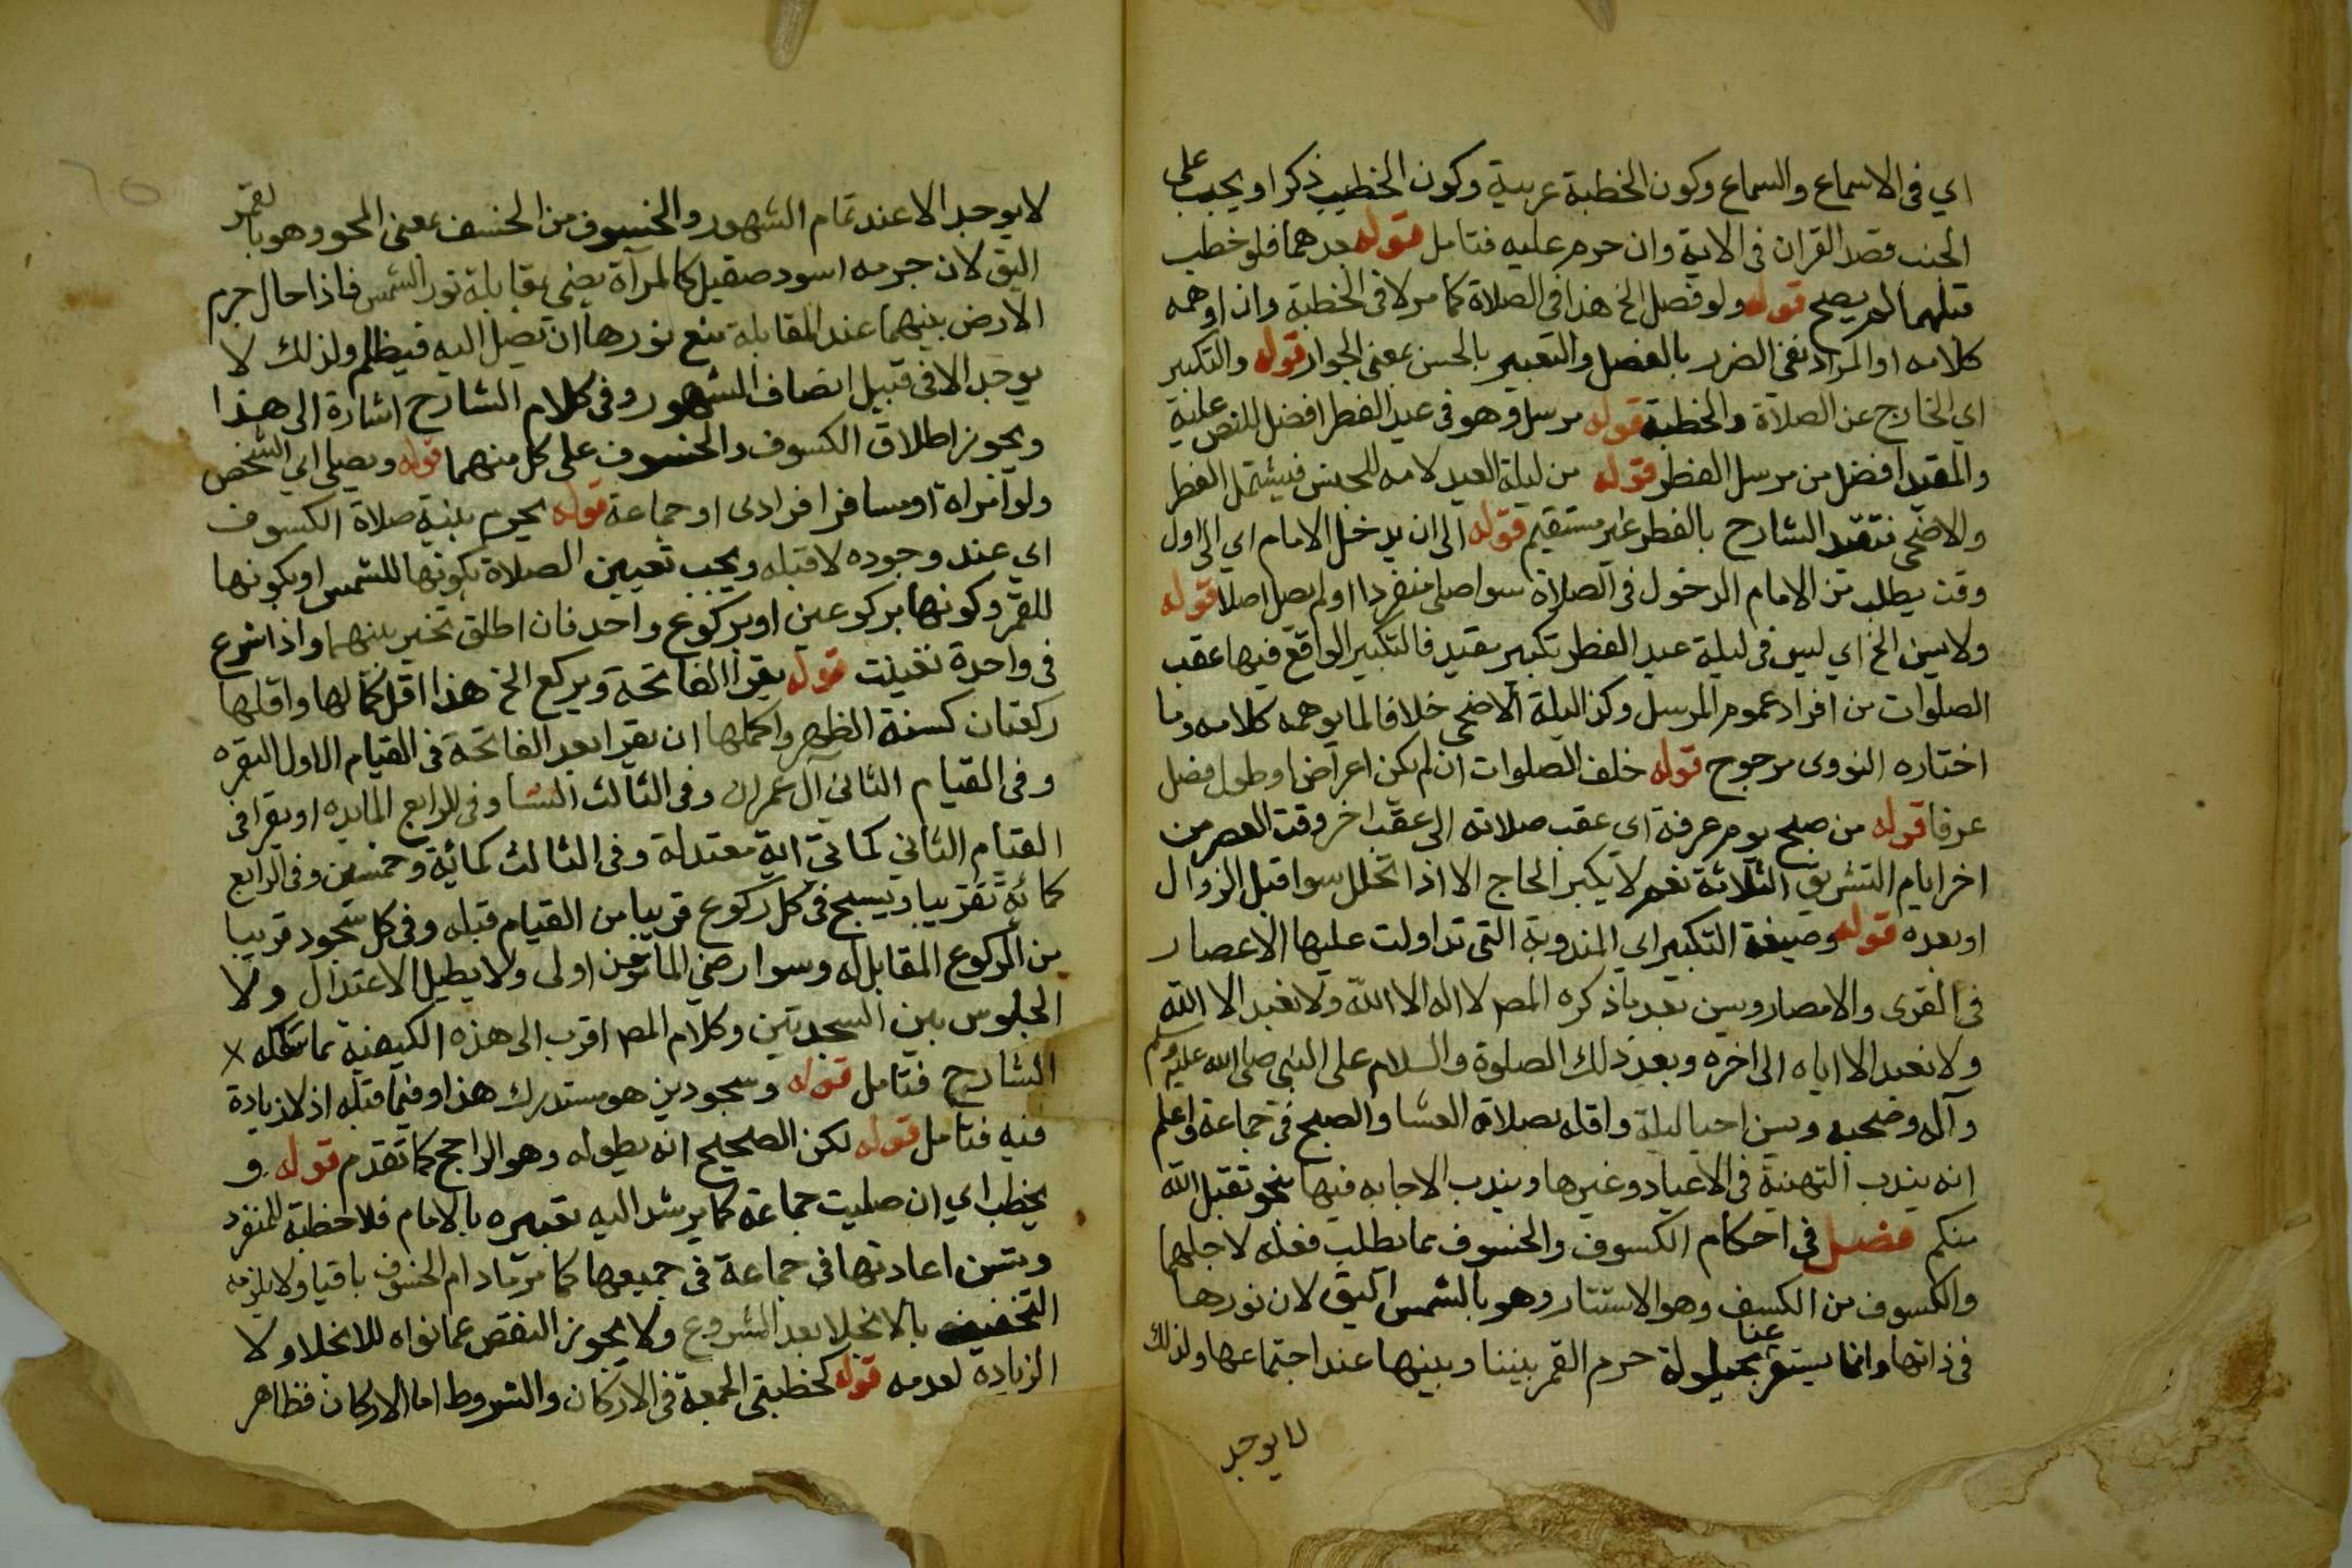 اي في الاسماع والسماع وكون الخطبة عربية وكون الخطيب ذكرا ويجب على
الجنب قصد القران في الاية وان حرم عليه فتامل قوله بعدهما فلو خطب
قبلهما لم يصح قوله ولو فصل الخ هذا في الصلاة كما مر لا في الخطبة وان اوهمه
كلامه او المراد نفي الضرر بالفصل والتعبير بالحسن بمعنى الجواز قوله والتكبير
اي الخارج عن الصلاة والخطبة قوله مرسل وهو في عيد الفطر افضل للنص عليه
والمقيد افضل من مرسل الفطر قوله من ليلة العيد لامه للجنس فيشتمل الفطر
والاضحى فتقيد الشارح بالفطر غير مستقيم قوله الى ان يدخل الامام اي الى اول
وقت يطلب من الامام الدخول في الصلاة سوا صلى منفردا او لم يصل اصلا قوله
ولا يسن الخ اي ليس في ليلة عيد الفطر تكبير مقيد فالتكبير الواقع فيها عقب
الصلوات من افراد عموم المرسل وكذا ليلة الاضحى خلافا لما يوهمه كلامه وما
اختاره النووى مرجوح قوله خلف الصلوات ان لم يكن اعراض او طول فصل
عرفا قوله من صبح يوم عرفة اي عقب صلاته الى عقب اخر وقت العصر من
اخر ايام التشريق الثلاثة نعم لا يكبر الحاج الا اذا تحلل سوا قبل الزوال
او بعده قوله وصيغة التكبير اي المندوبة التي تداولت عليها الاعصار
في القرى والامصار ويسن بعد ما ذكره المص لا اله الا الله ولا نعبد الا الله
ولا نعبد الا اياه الى اخره وبعد ذلك الصلوة والسلام على النبي صلى الله عليه وسلم
وآله وصحبه ويسن احيا ليلة واقله بصلاة العشا والصبح في جماعة واعلم
انه يندب التهنية في الاعياد وغيرها ويندب الاجابه فيها بنحو تقبل الله
منكم فصل في احكام الكسوف والخسوف بما يطلب فعله لاجلهما
والكسوف من الكسف وهو الاستتار وهو بالشمس اليق لان نورها
في ذاتها وانما يستتر عنا بحيلولة جرم القمر بيننا وبينها عند اجتماعها ولذلك
لا يوجد
لا يوجد الا عند تمام الشهور والخسوف من الخسف بمعنى المحو وهو بالقمر
اليق لان جرمه اسود صقيل كالمرآة يضي بمقابلة نور الشمس فاذا حال جرم
الارض بينهما عند المقابلة منع نورها ان تصل اليه فيظلم ولذلك لا
يوجد الا في قبيل انصاف الشهور وفي كلام الشارح اشارة الى هذا
ويجوز اطلاق الكسوف والخسوف على كل منهما قوله ويصلي اي الشخص
ولو امراة او مسافرا فرادى او جماعة قوله يحرم بنية صلاة الكسوف
اي عند وجوده لا قبله ويجب تعيين الصلاة بكونها للشمس او بكونها
للقمر وكونها بركوعين او بركوع واحد فان اطلق تخير بينهما واذا شرع
في واحدة تعينت قوله يقرا الفاتحة ويركع الخ هذا اقل كمالها واقلها
ركعتان كسنة الظهر واكملها ان يقرا بعد الفاتحة في القيام الاول البقره
وفي القيام الثاني آل عمران وفي الثالث النسا وفي الرابع المايده او يقرا في
القيام الثاني كمائتي اية معتدلة وفي الثالث كمائة وخمسين وفي الرابع
كمائة تقريبا ويسبح في كل ركوع قريبا من القيام قبله وفي كل سجود قريبا
من الركوع المقابل له وسوا رضي المامومون اولى ولا يطيل الاعتدال ولا
الجلوس بين السجدتين وكلام المص اقرب الى هذه الكيفية مما سلكه
الشارح فتامل قوله وسجودين هو مستدرك هذا وفيما قبله اذ لا زيادة
فيه فتامل قوله لكن الصحيح انه يطوله وهو الراجح كما تقدم قوله و
يخطب اي ان صليت جماعة كما يرشد اليه تعبيره بالامام فلا خطبة للمنفرد
ويسن اعادتها في جماعة في جميعها كما مر ما دام الخسوف باقيا ولا يلزمه
التخفيف بالانجلا بعد الشروع ولا يجوز النقص عما نواه للانجلا ولا
الزيادة لعدمه قوله كخطبتي الجمعة في الاركان والشروط اما الاركان فظاهر